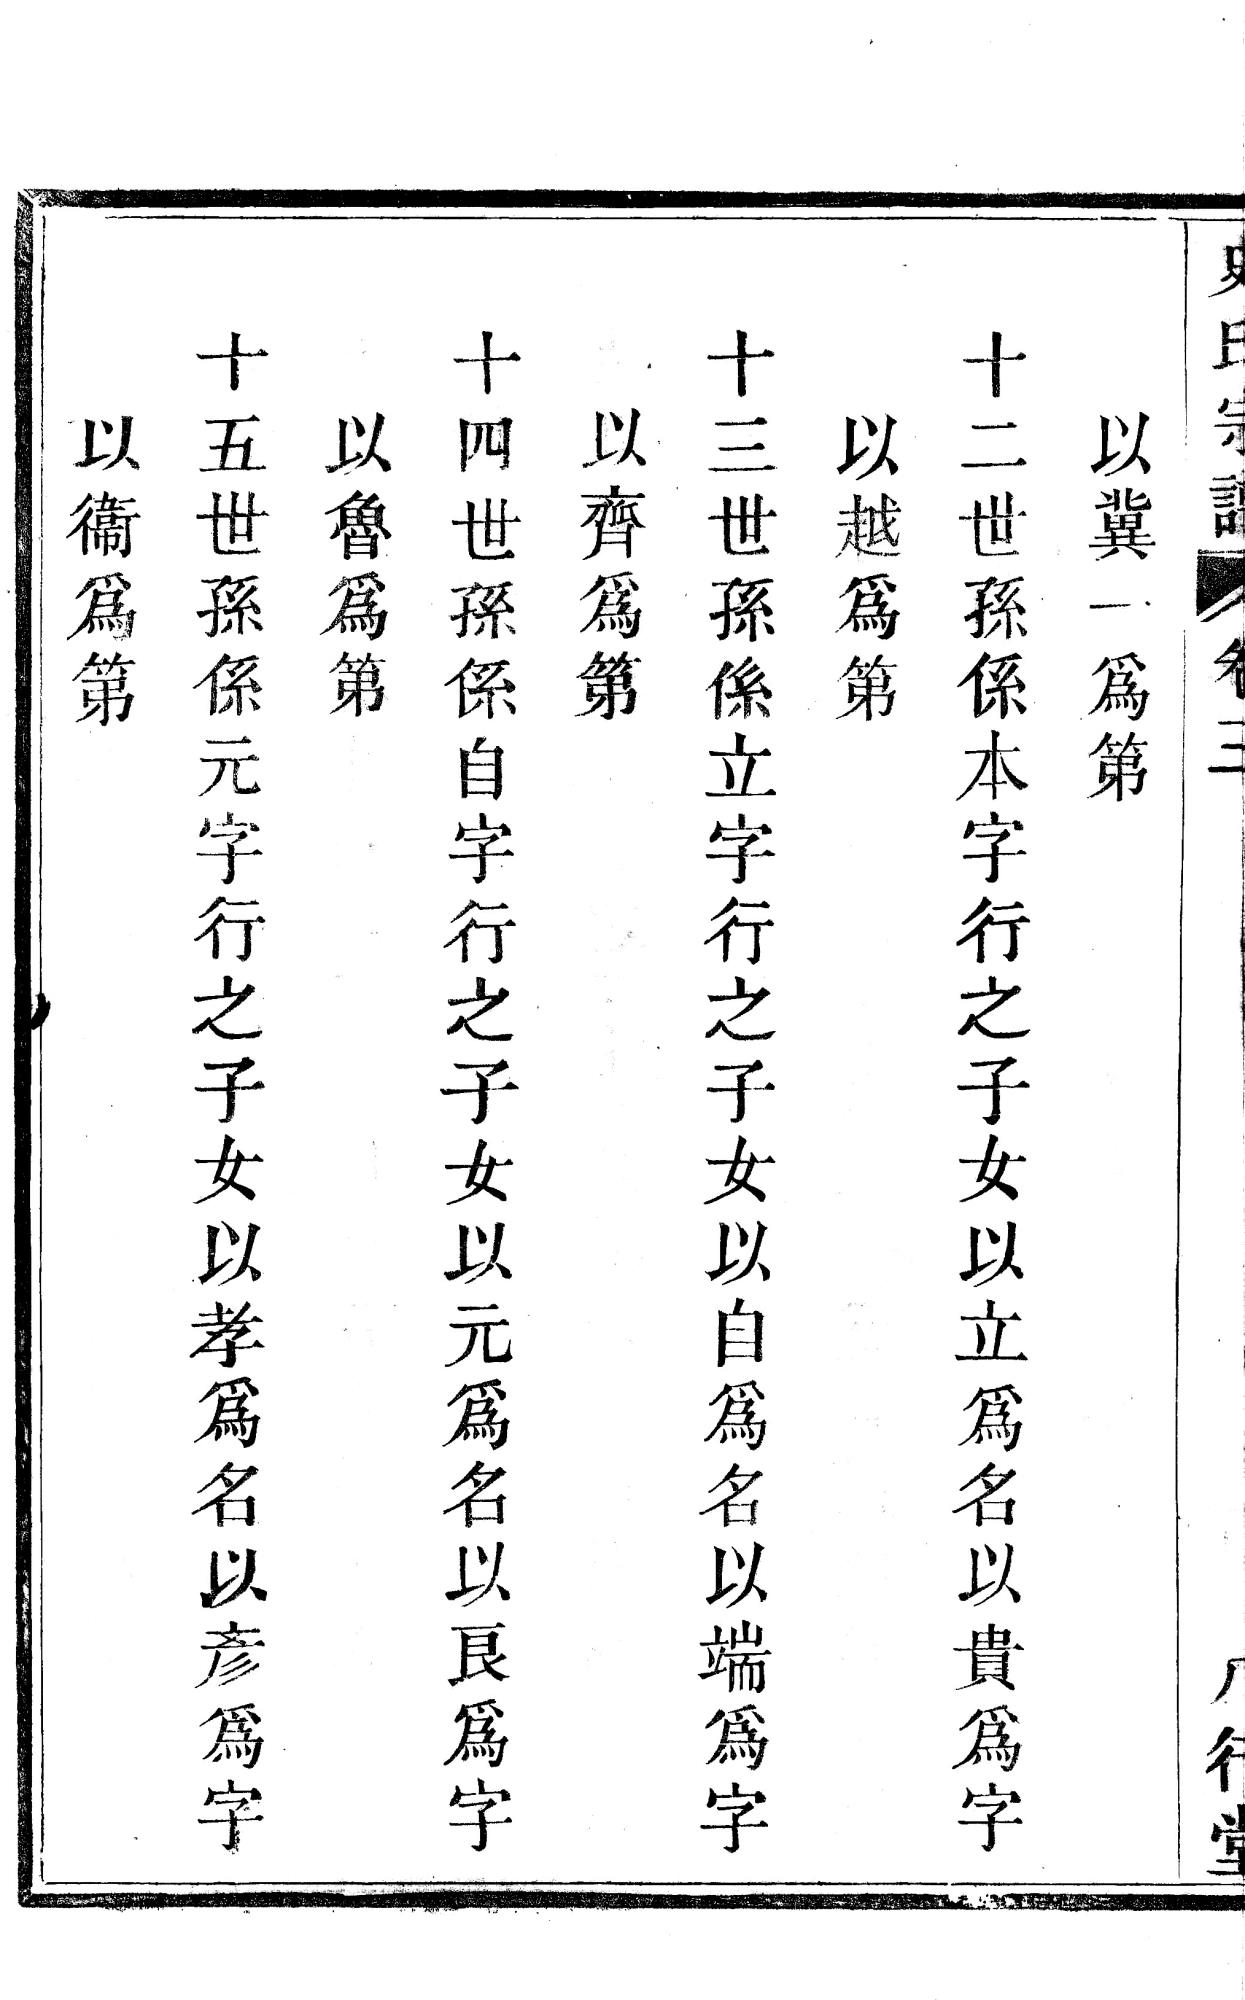 史氏宗譜 卷三 八行堂
以冀一爲第
十二世孫係本字行之子女以立爲名以貴爲字
以越爲第
十三世孫係立字行之子女以自爲名以端爲字
以齊爲第
十四世孫係自字行之子女以元爲名以艮爲字
以魯爲第
十五世孫係元字行之子女以孝爲名以彥爲字
以衞爲第